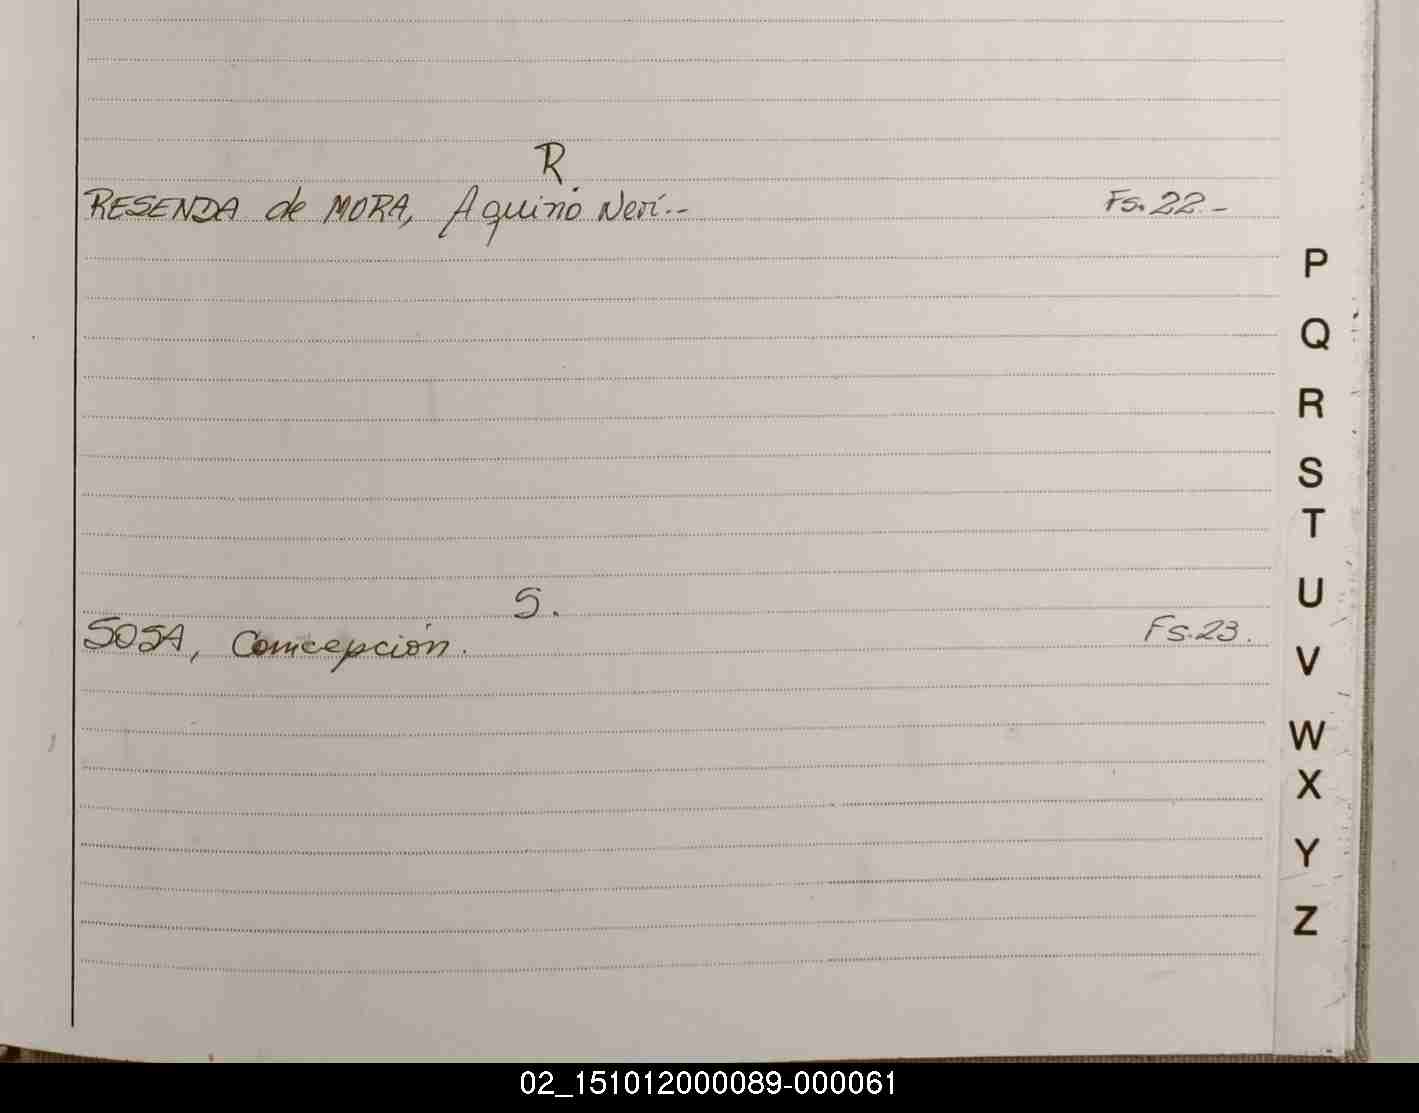 R.
RESENDA de MORA, Aquino Neri.-- Fs. 22.-
S.
SOSA, Concepción. Fs. 23.
P
Q
R
S
T
U
V
W
X
Y
Z
02_151012000089-000061